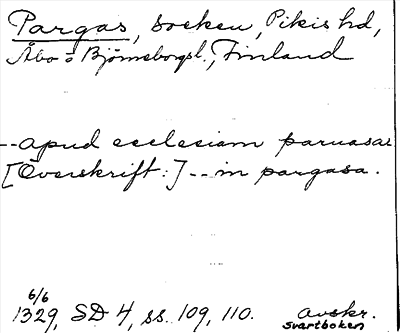 Pargas, socken, Pikis hd,
Åbo o Björneborgsl., Finland
--apud ecclesiam paruasar
[Överskrift:]--in pargasa.
6/6
1329, SD 4, ss. 109, 110. avskr.
svartboken